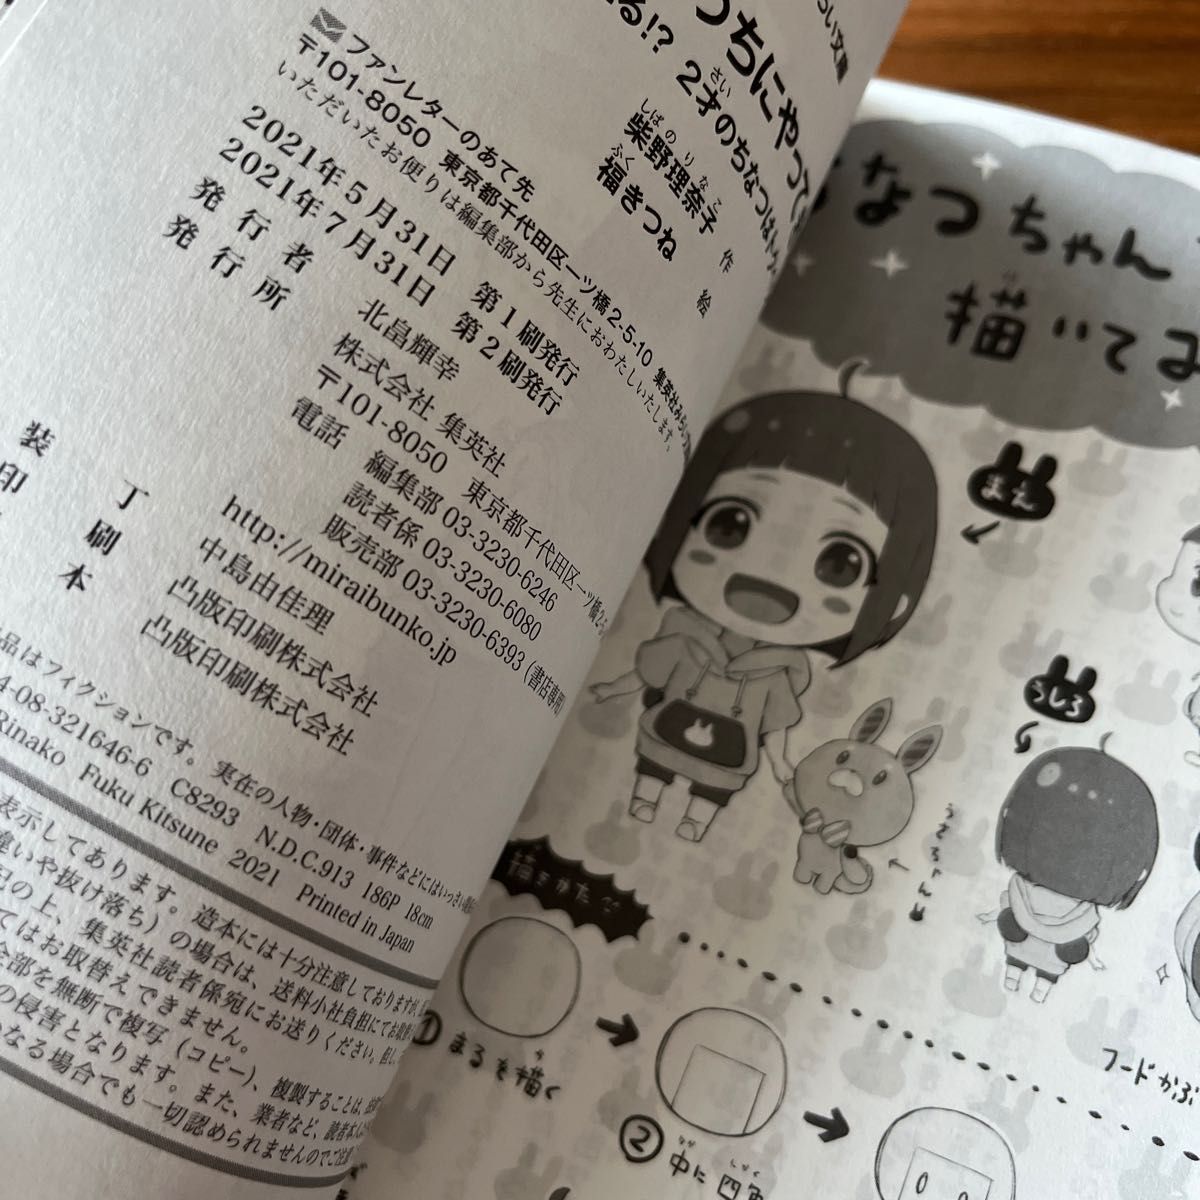 らい文庫
っちにやって
る!? 2才のちなつは
さい
しばのりなこ
柴野理奈子 作
ふく
福きつね 絵
ファンレターのあて先
〒101-8050 東京都千代田区一ツ橋2-5-10 集英社みらい
いただいたお便りは編集部から先生におわたしいたします。
2021年5月31日 第1刷発行
2021年7月31日 第2刷発行
発行者 北畠輝幸
発行所 株式会社 集英社
〒101-8050 東京都千代田区一ツ橋2-5
電話 編集部 03-3230-6246
読者係 03-3230-6080
販売部 03-3230-6393(書店専用)
http://miraibunko.jp
装丁 中島由佳理
印刷 凸版印刷株式会社
本 凸版印刷株式会社
品はフィクションです。実在の人物・団体・事件などにはいっさい
4-08-321646-6 C8293 N.D.C.913 186P 18cm
Rinako Fuku Kitsune 2021 Printed in Japan
表示してあります。造本には十分注意しておりますが、
違いや抜け落ち)の場合は、送料小社負担にてお取替
記の上、集英社読者係宛にお送りください。但し、
てはお取替えできません。
全部を無断で複写(コピー)、複製することは、
の侵害となります。また、業者など、読者本人
かなる場合でも一切認められませんのでご注意
なつちゃん
描いてよ
まえ
うしろ
うさるくま
描きかた
① まるを描く
② 中に四角
フードかぶ